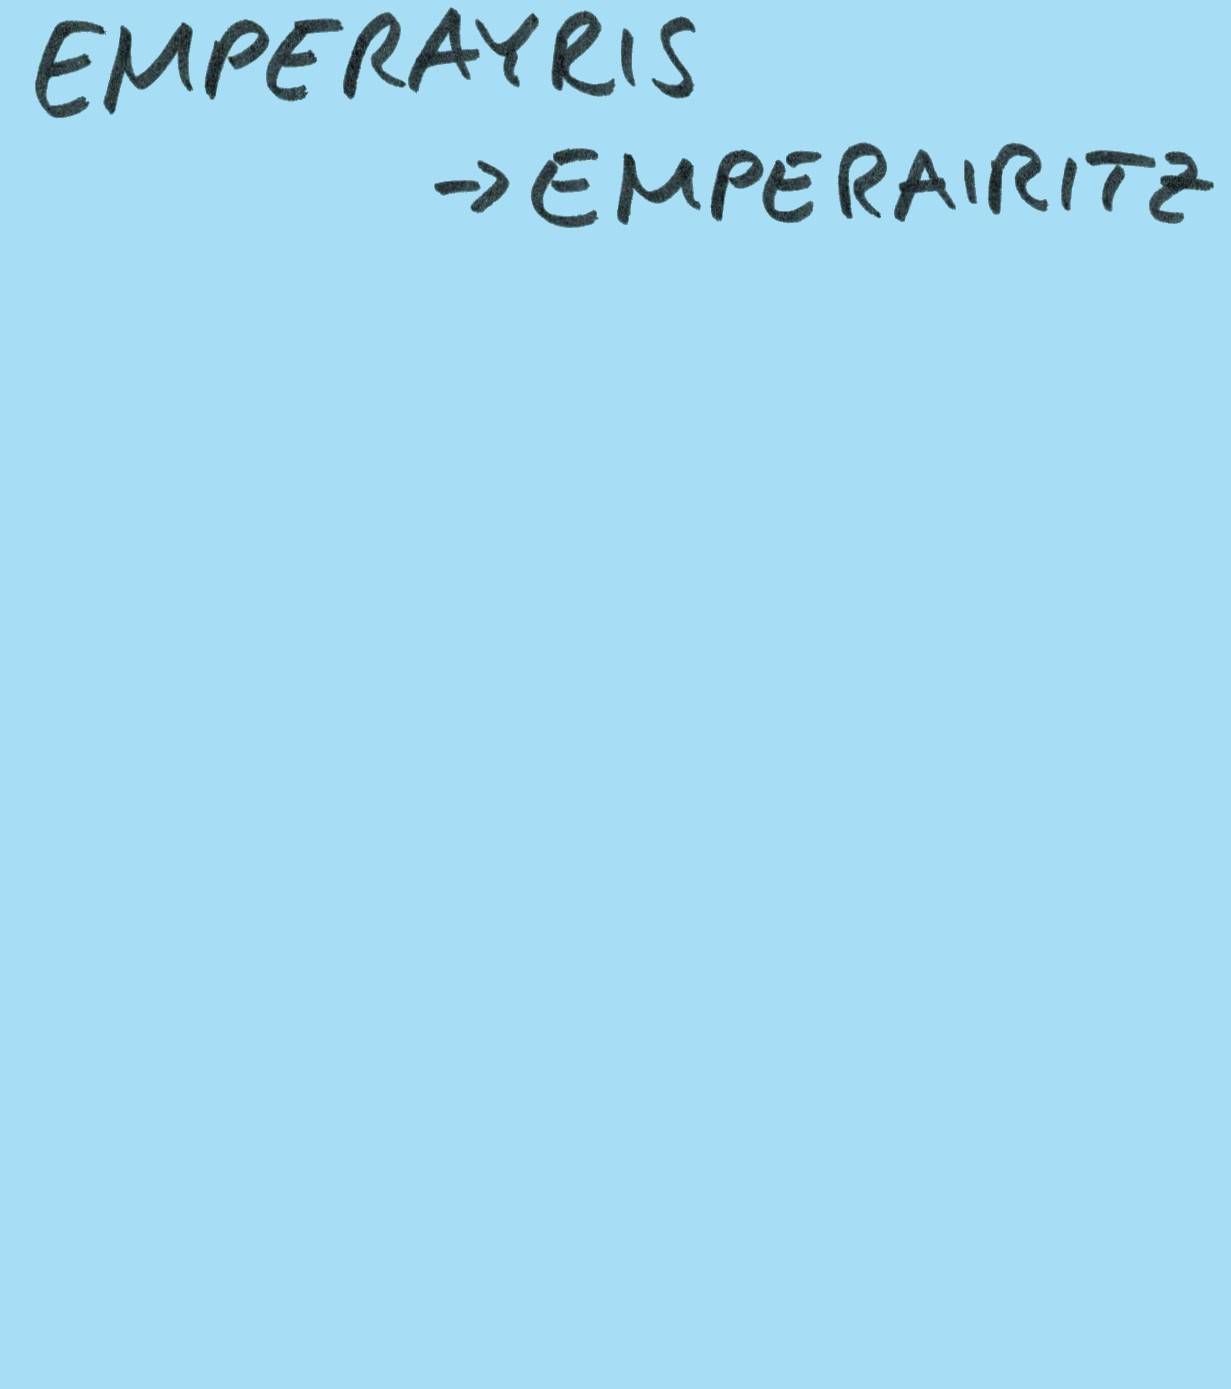 EMPERAYRIS
→ EMPERAIRITZ